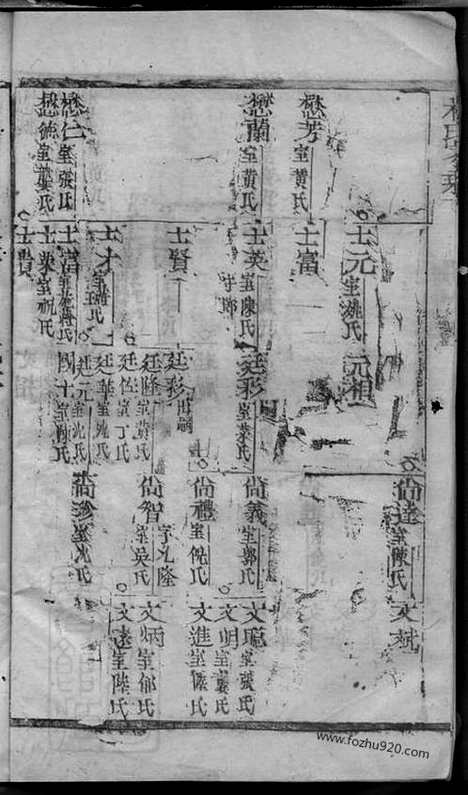 懋芳室黃氏
懋蘭室黃氏
懋仁室張氏
懋德室婁氏
士元室姚氏
元祖
士富
士英室陳氏
守鄉
士賢
士才
士富
士榮室祝氏
士賢
廷彩室葉氏
廷彩出嗣
廷隆室黃氏
廷佐室丁氏
廷華室姚氏
廷元室沈氏
國士室陶氏
尚達室陳氏
尚義室郭氏
尚禮室倪氏
尚智字允隆室吳氏
文斌
文聰室張氏
文明室襲氏
文進室陳氏
文炳室郁氏
文遠室陸氏
www.fozhu920.com